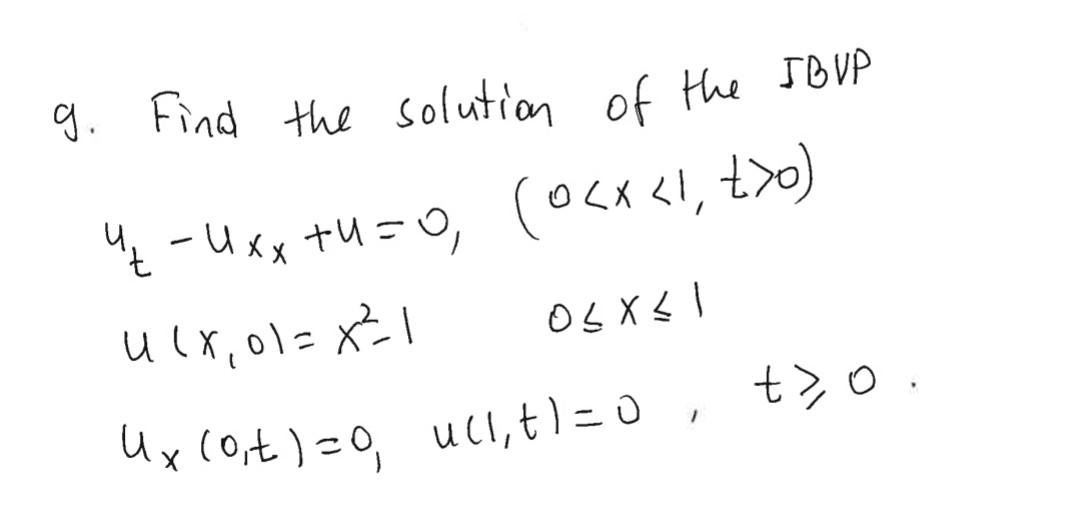 9. Find the solution of the IBVP
u_t - u_xx + u = 0, (0<x<1, t>0)
u(x,0) = x²-1 0≤x≤1
u_x(0,t)=0, u(1,t)=0, t≥0.